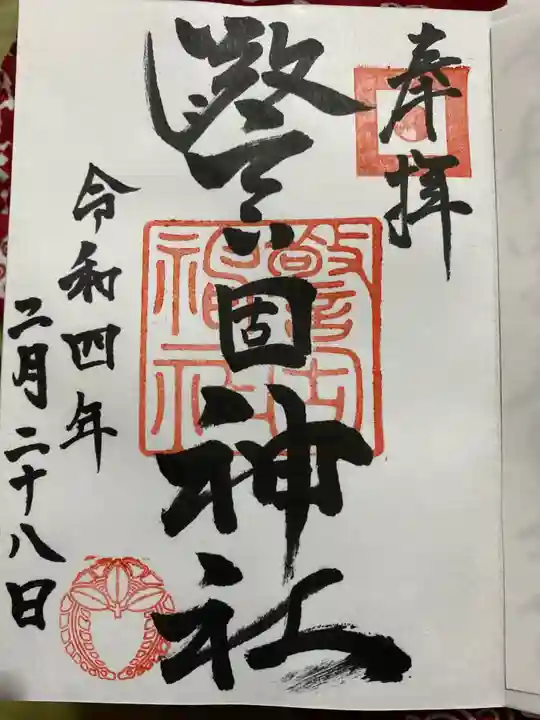 奉拝
警固神社
警固神社
令和四年
二月二十八日